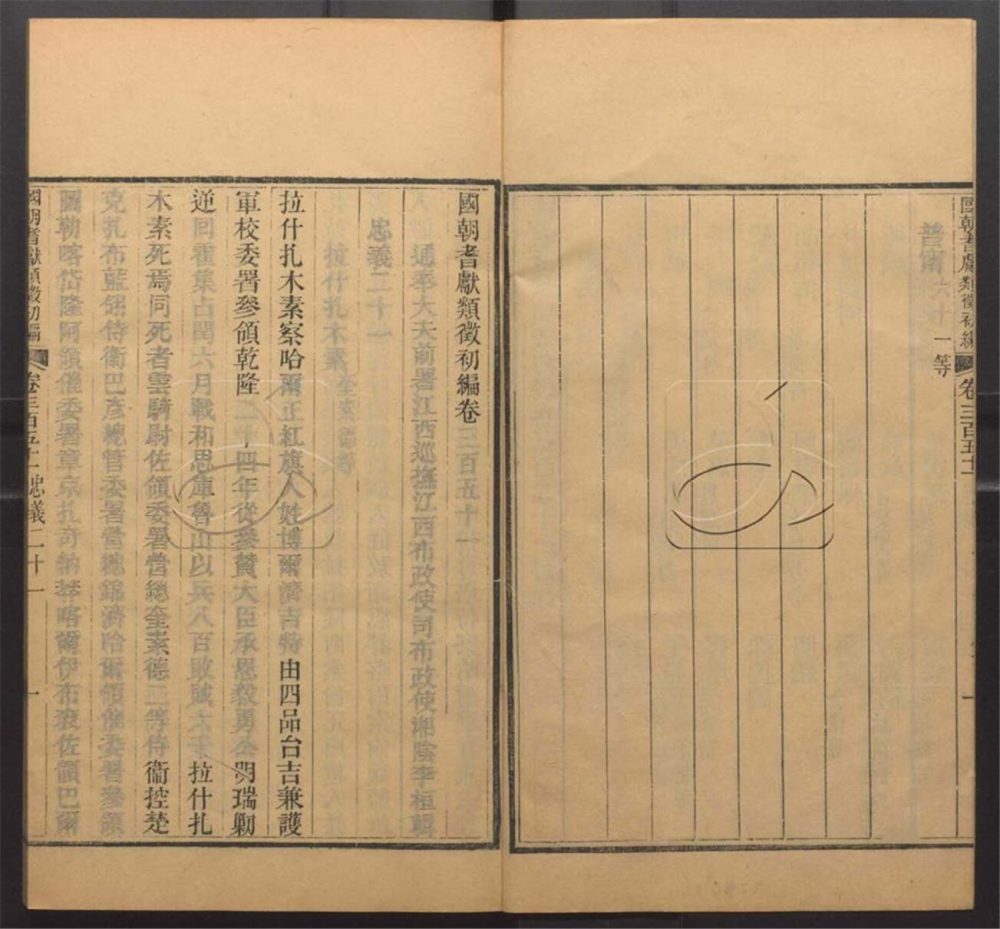 國朝耆獻類徵初編
卷三百五十一
一等
國朝耆獻類徵初編卷三百五十一
通奉大夫前署江西巡撫江西布政使司布政使湘陰李桓輯
忠義二十一
拉什扎木素
拉什扎木素察哈爾正紅旗人姓博爾濟吉特由四品台吉兼護
軍校委署參領乾隆二十四年從參贊大臣承恩毅勇公明瑞勦
逆回霍集占閏六月戰和思庫魯山以兵八百敗賊六千拉什扎
木素死焉同死者雲騎尉佐領委署營總奎素德二等侍衞控楚
克扎布藍翎侍衞巴彥總管委署營總錦濟哈爾領催委署參領
圖勒喀岱隆阿領催委署章京扎奇納莽喀爾伊布袞佐領巴爾
國朝耆獻類徵初編
卷三百五十一忠義二十一
一